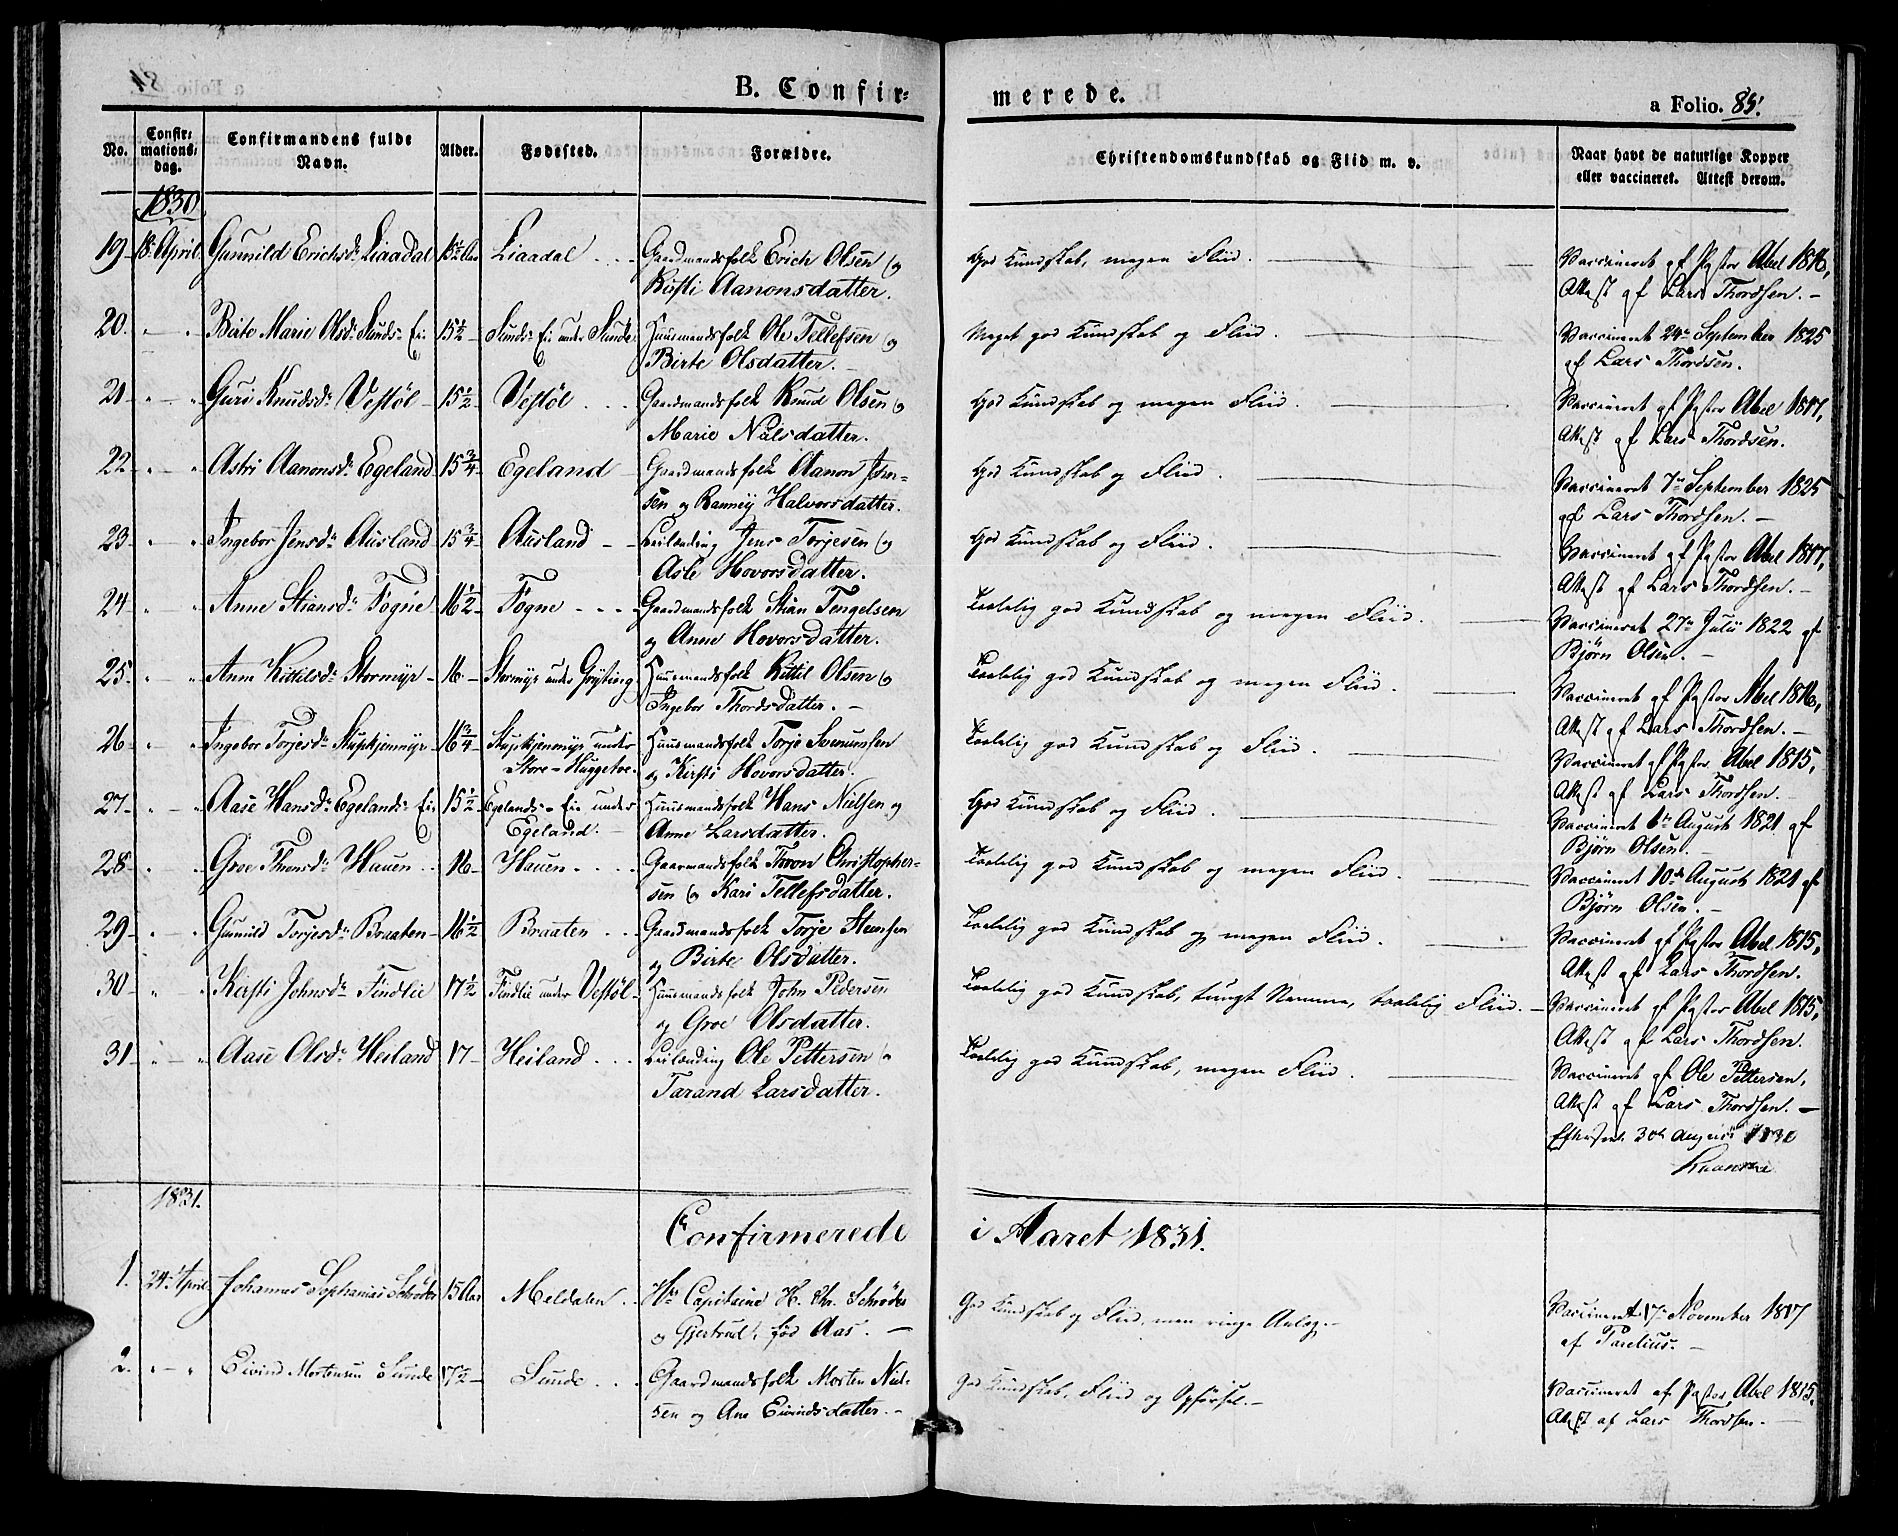 B. Confir-
merede.
a Folio. 85.
No.
Confir-
mations-
dag.
Confirmandens fulde
Navn.
Alder.
Fødested.
Forældre.
Christendomskundskab og Flid m. v.
Naar havt de naturlige Kopper
eller vaccineret. Attest derom.
1830
19 18 April Gunnild Erichsd. Liaadal 15 Aar Liaadal Gaardmandsfolk Erich Olsen og God Kundskab, megen Fliid. Vaccineret af Pastor Abel 1816,
Kirsti Aanonsdatter. Attest af Lars Thordsen.
20. " Birte Marie Olsd. Sunds-Eie 15½ Sunds-Eie under Sunde Huusmandsfolk Ole Tellefsen og Meget god Kundskab og Fliid. Vaccineret 24 September 1825
Birte Olsdatter. af Lars Thordsen.
21 " Guri Knudsd. Vestøl 15½ Vestøl Gaardmandsfolk Knud Olsen og God Kundskab og megen Fliid. Vaccineret af Pastor Abel 1817,
Marie Nilsdatter. Attest af Lars Thordsen.
22 " Astri Aanonsd. Egeland 15¾ Egeland Gaardmandsfolk Aanon Jens- God Kundskab og Fliid. Vaccineret 7 September 1825
sen og Ranney Halvorsdatter. af Lars Thordsen.
23 " Ingebor Jensd. Ausland 15¾ Ausland Leilænding Jens Torjesen og God Kundskab og Fliid. Vaccineret af Pastor Abel 1817,
Asle Hovorsdatter. Attest af Lars Thordsen.
24 " Anne Stiansd. Fogne 16½ Fogne Gaardmandsfolk Stian Tengelsen Taalelig god Kundskab og megen Fliid. Vaccineret 27 Julii 1822 af
og Anne Hovorsdatter. Bjørn Olsen.
25. " Anne Kittilsd. Stormyr 16 Stormyr under Grytting Huusmandsfolk Kittil Olsen og Taalelig god Kundskab og megen Fliid. Vaccineret af Pastor Abel 1816,
Ingebor Thordsdatter. Attest af Lars Thordsen.
26 " Ingebor Torjesd. Stupkjenmyr 16¾ Stupkjenmyr under Huusmandsfolk Torje Svenumsen Taalelig god Kundskab og Fliid. Vaccineret af Pastor Abel 1815,
Store-Huggetve. og Kirsti Hovorsdatter. Attest af Lars Thordsen.
27 " Aase Hansd. Egelands-Eie 15½ Egelands-Eie under Huusmandsfolk Hans Nielsen og God Kundskab og Fliid. Vaccineret 6 August 1821 af
Egeland. Anne Larsdatter. Bjørn Olsen.
28 " Groe Thronsd. Hauen 16 Hauen Gaarmandsfolk Thron Christopher- Taalelig god Kundskab og megen Fliid. Vaccineret 10 August 1821 af
sen og Kari Tellefsdatter. Bjørn Olsen.
29 " Gunnild Torjesd. Braaten 16½ Braaten Gaardmandsfolk Torje Steensen Taalelig god Kundskab og megen Fliid. Vaccineret af Pastor Abel 1815,
og Birte Olsdatter. Attest af Lars Thordsen.
30 " Kirsti Johnsd. Findlie 17½ Findlie under Vestøl Huusmandsfolk John Pedersen Taalelig god Kundskab, tungt Nemme, taalelig Fliid. Vaccineret af Pastor Abel 1815,
og Groe Olsdatter. Attest af Lars Thordsen.
31 " Aase Olsd. Heiland 17 Heiland Leilænding Ole Pettersen og Taalelig god Kundskab, megen Fliid. Vaccineret af Ole Pettersen,
Tarand Larsdatter. Attest af Lars Thordsen.
Efterseet 30 August 1830
1831.
Confirmerede i Aaret 1831.
1. 24 April Johannes Sophanias Schrøder 15 Aar Meldalen Hr. Capitaine H. Chr. Schrøder God Kundskab og Fliid, men ringe Anlæg. Vaccineret 17 November 1817
og Gjertrud, fød Aas. af Parelius.
2. " Eivind Mortensen Sunde 17½ Sunde Gaardmandsfolk Morten Niel- God Kundskab, Fliid og Opførsel. Vaccineret af Pastor Abel 1815.
sen og Ane Eivindsdatter. Attest af Lars Thordsen.